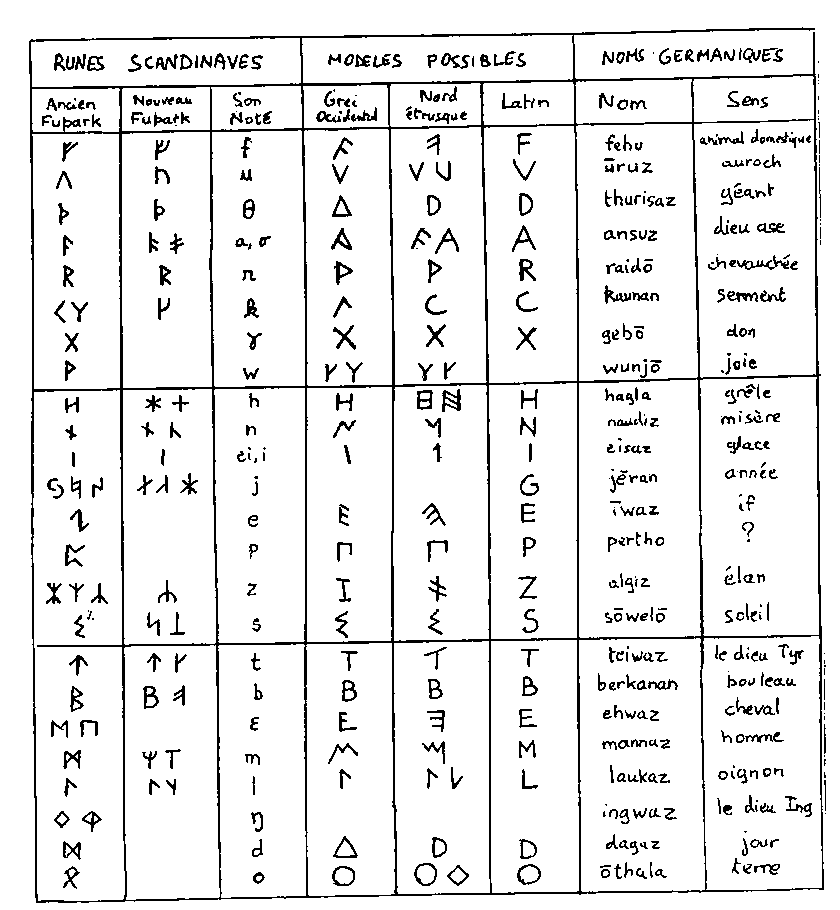 RUNES SCANDINAVES MODELES POSSIBLES NOMS GERMANIQUES
Ancien Fuþark Nouveau Fuþark Son Noté Grec Occidental Nord étrusque Latin Nom Sens
ᚠ ᚠ f F fehu animal domestique
ᚢ ᚢ u V V U V ūruz auroch
ᚦ ᚦ θ Δ D D thurisaz géant
ᚨ a, o A A A ansuz dieu ase
ᚱ ᚱ r R raidō chevauchée
ᚲ Y ᚴ k Λ C C kaunan serment
ᚷ ɣ X X X gebō don
ᚹ w wunjō joie
ᚺ ᚼ + h H H hagla grêle
ᚾ ᚾ n N naudiz misère
ᛁ ᛁ ei, i I I eisaz glace
j G jēran année
ᛇ e E E īwaz if
ᛈ p Π Π P pertho ?
ᛉ z I Z algiz élan
s S sōwelō soleil
ᛏ ᛏ t T T T teiwaz le dieu Tyr
ᛒ ᛒ b B B B berkanan bouleau
M Π ε E E ehwaz cheval
ᛗ m M mannaz homme
ᛚ ᛚ l L laukaz oignon
◇ ŋ ingwaz le dieu Ing
ᛞ d Δ D D dagaz jour
ᛟ o O O ◇ O ōthala terre